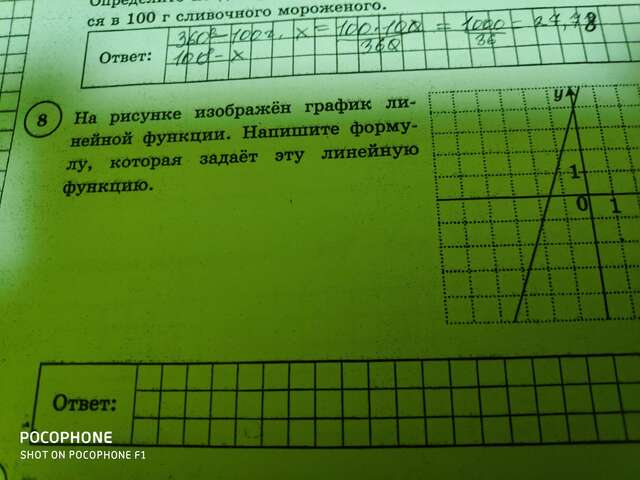 ся в 100 г сливочного мороженого.
Ответ:
360° - 100г. x = 100·100 / 360 = 1000 / 36 = 27,78
100° - x
8
На рисунке изображён график ли-
нейной функции. Напишите форму-
лу, которая задаёт эту линейную
функцию.
y
1
0 1
Ответ:
POCOPHONE
SHOT ON POCOPHONE F1